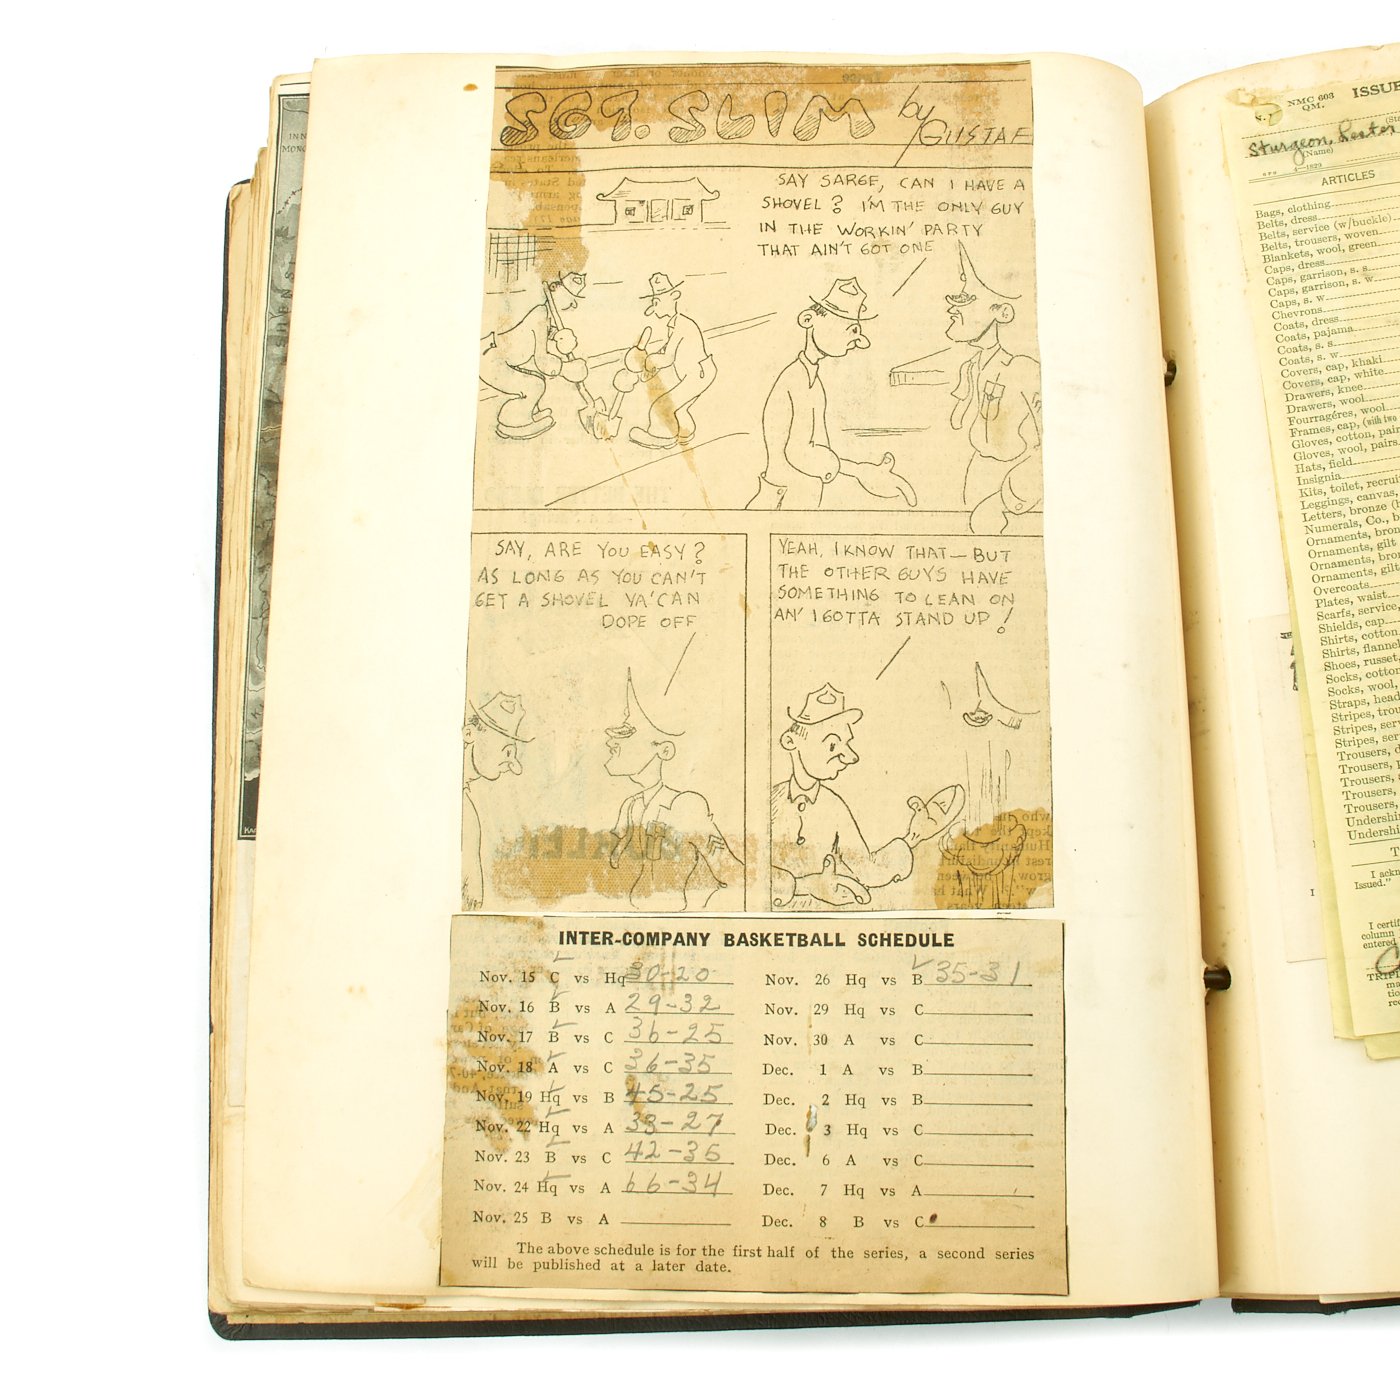 SGT. SLIM
by
GUSTAF
SAY SARGE, CAN I HAVE A
SHOVEL? I'M THE ONLY GUY
IN THE WORKIN' PARTY
THAT AIN'T GOT ONE
SAY, ARE YOU EASY?
AS LONG AS YOU CAN'T
GET A SHOVEL YA'CAN
DOPE OFF
YEAH, I KNOW THAT—BUT
THE OTHER GUYS HAVE
SOMETHING TO LEAN ON
AN' I GOTTA STAND UP!
INTER-COMPANY BASKETBALL SCHEDULE
Nov. 15 C vs Hq 30-20
Nov. 16 B vs A 29-32
Nov. 17 B vs C 36-25
Nov. 18 A vs C 36-35
Nov. 19 Hq vs B 45-25
Nov. 22 Hq vs A 38-27
Nov. 23 B vs C 42-36
Nov. 24 Hq vs A 66-34
Nov. 25 B vs A
Nov. 26 Hq vs B 35-31
Nov. 29 Hq vs C
Nov. 30 A vs C
Dec. 1 A vs B
Dec. 2 Hq vs B
Dec. 3 Hq vs C
Dec. 6 A vs C
Dec. 7 Hq vs A
Dec. 8 B vs C
The above schedule is for the first half of the series, a second series
will be published at a later date.
NMC 603
QM.
ISSUE
Sturgeon, Lester
(Name)
ARTICLES
Bags, clothing
Belts, dress
Belts, service (w/buckle)
Belts, trousers, woven
Blankets, wool, green
Caps, dress
Caps, garrison, s. s.
Caps, garrison, s. w.
Caps, s. w.
Chevrons
Coats, dress
Coats, pajama
Coats, s. s.
Coats, s. w.
Covers, cap, khaki
Covers, cap, white
Drawers, knee
Drawers, wool
Fourragéres, wool
Frames, cap, (with two
Gloves, cotton, pair
Gloves, wool, pairs
Hats, field
Insignia
Kits, toilet, recrui
Leggings, canvas,
Letters, bronze (
Numerals, Co., b
Ornaments, bron
Ornaments, gilt
Ornaments, bro
Ornaments, gilt
Overcoats
Plates, waist
Scarfs, service,
Shields, cap
Shirts, cotton
Shirts, flannel
Shoes, russet,
Socks, cotton
Socks, wool,
Straps, head
Stripes, trou
Stripes, ser
Stripes, ser
Trousers, d
Trousers, p
Trousers,
Trousers,
Trousers,
Undershi
Undershi
I ackn
Issued."
I certif
column
entered